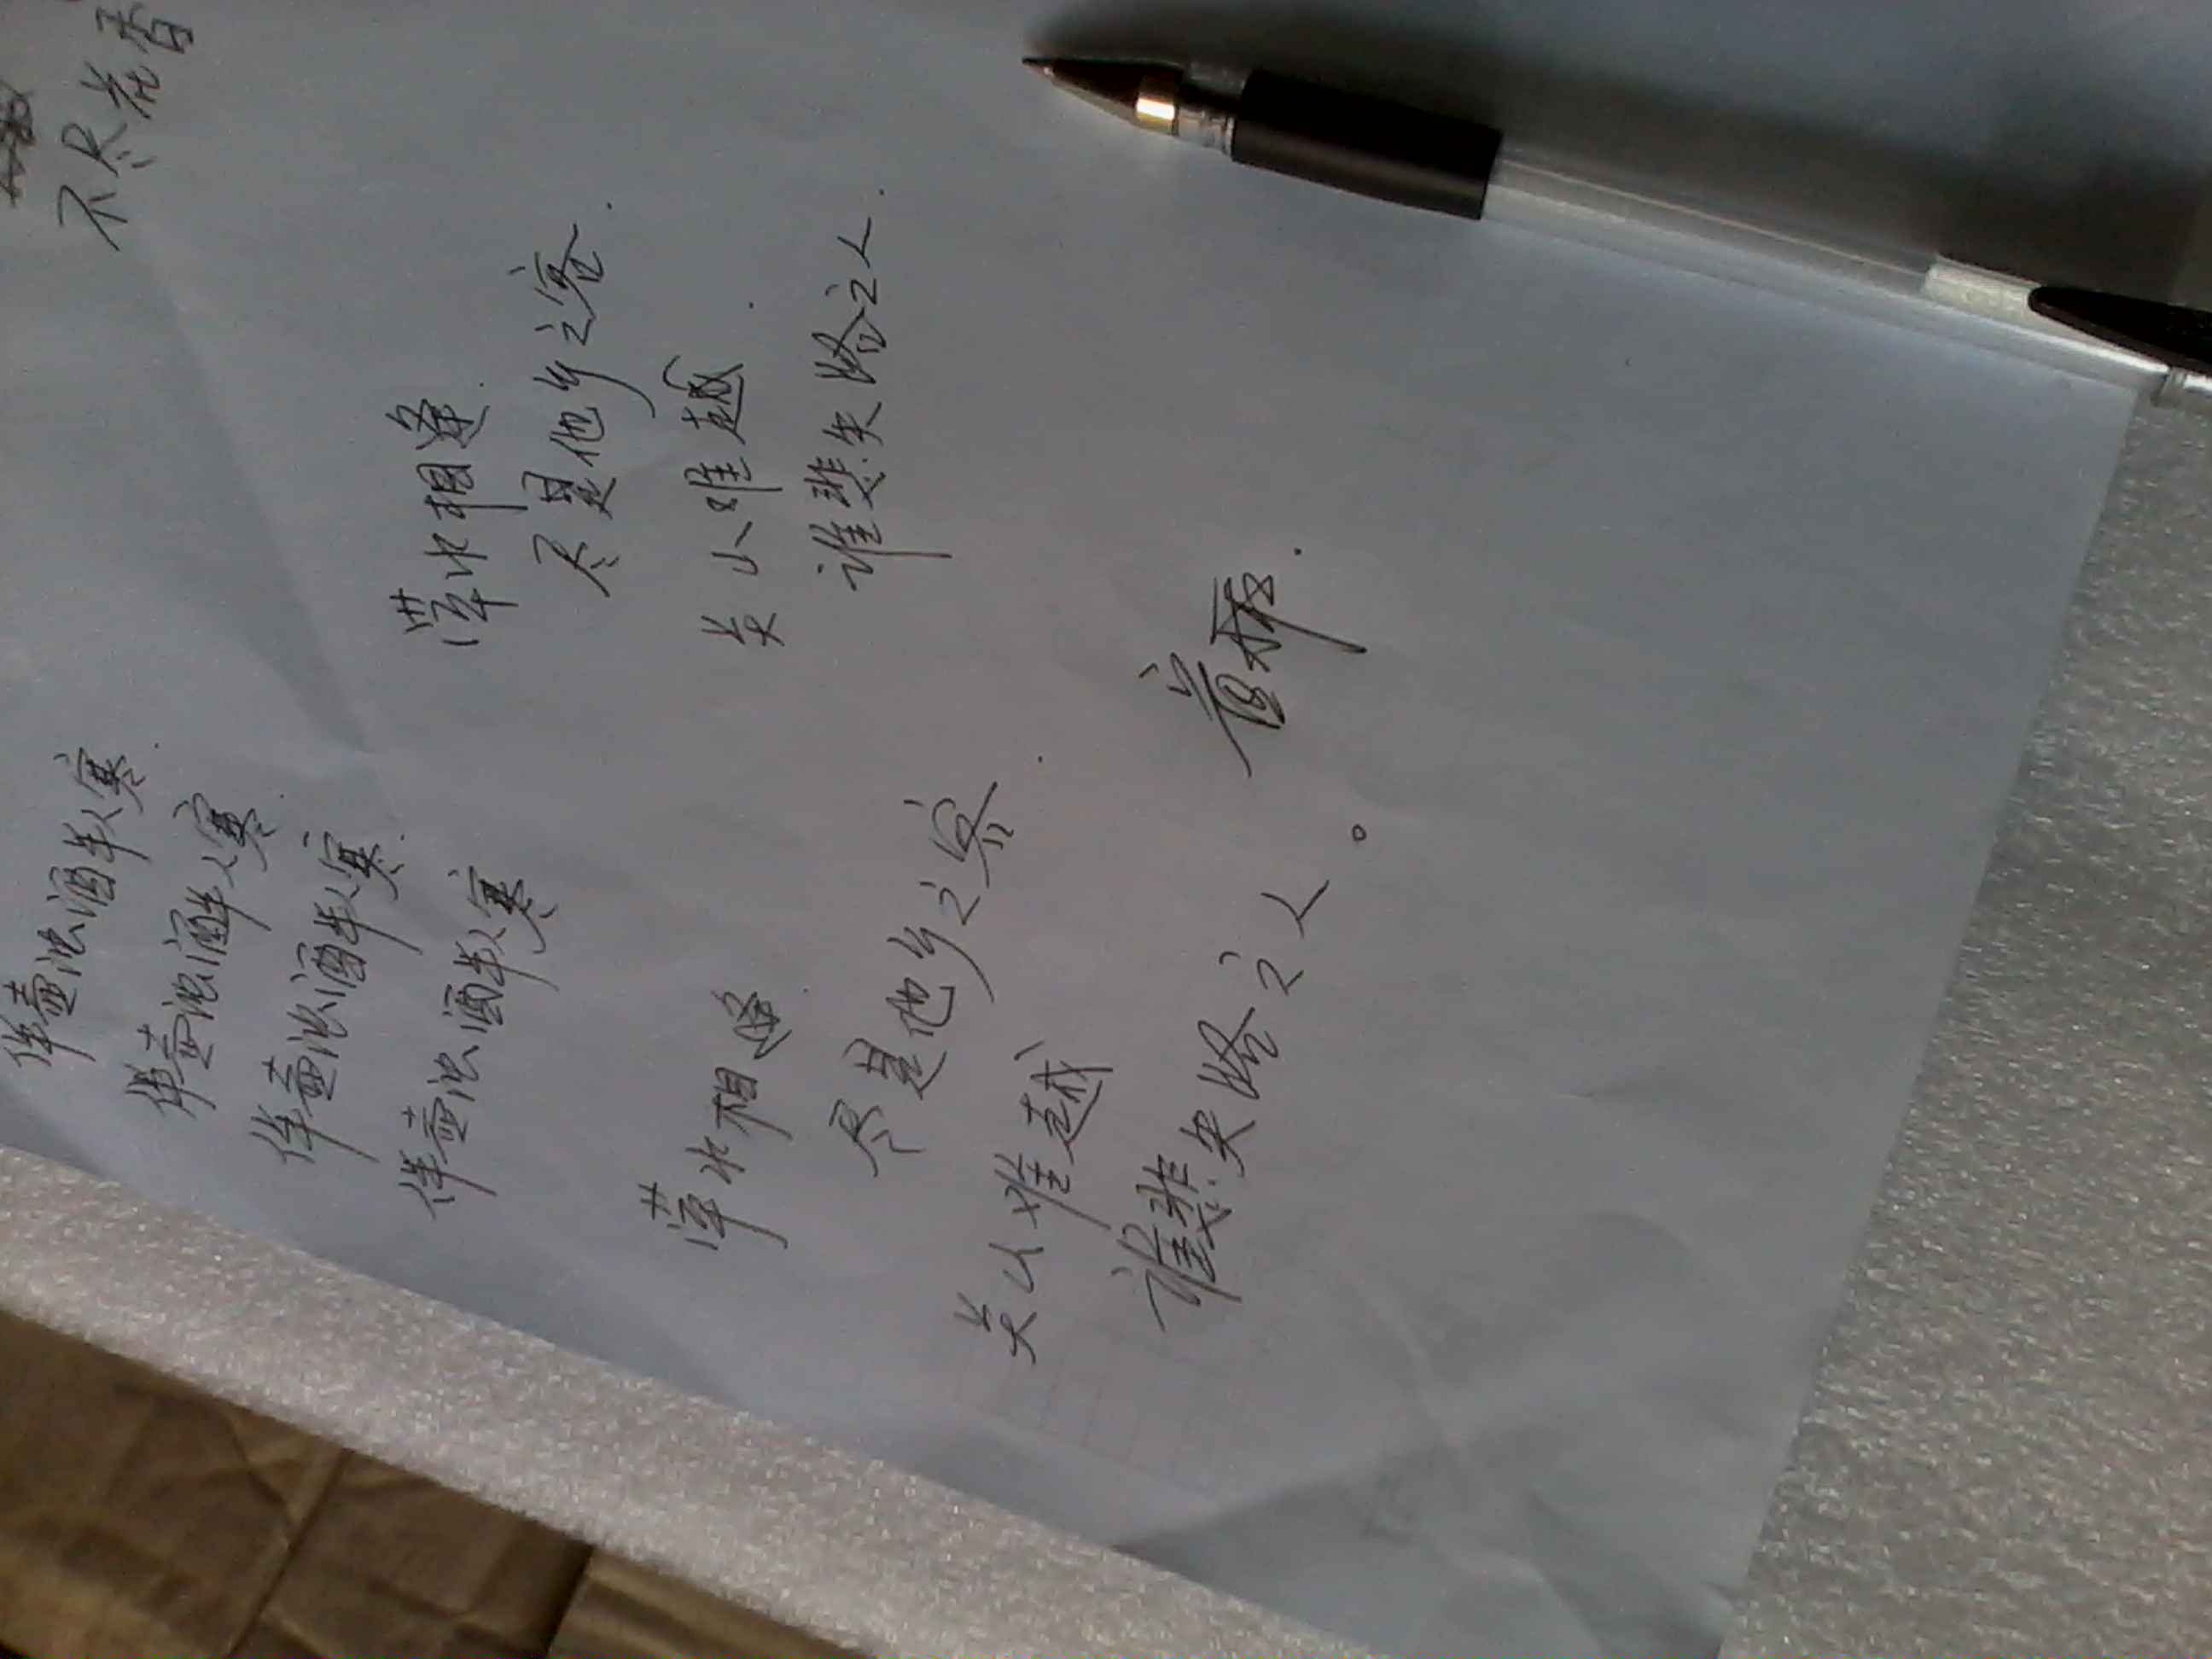 不尽花香
伴壶浊酒半人寒.
伴壶浊酒解人寒
伴壶浊酒半人寒.
伴壶浊酒半人寒
萍水相逢.
尽是他乡之客.
关山难越.
谁悲失路之人.
萍水相逢.
尽是他乡之客.
关山难越
谁悲失路之人。